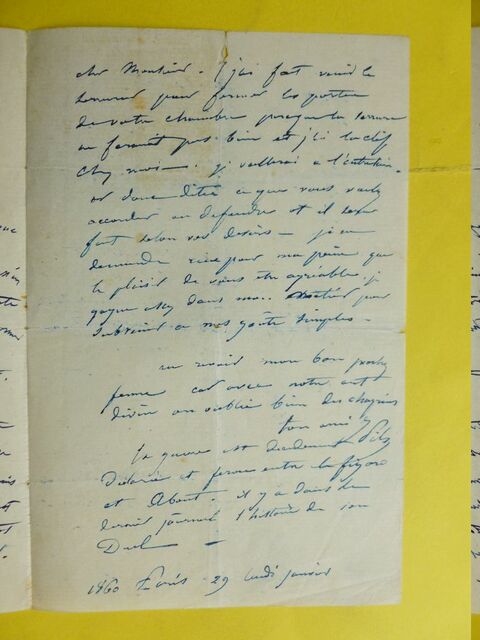 cher Monsieur. j'ai fait venir le
serrurier pour fermer les portes
de votre chambre puisque la serrure
ne fermait pas bien et j'ai la clef
chez moi — j'y veillerai a l'
or donc dites ce que vous voulez
accorder ou defendre et il sera
fait selon vos desirs — je ne
demande rien pour ma peine que
le plaisir de vous etre agréable. je
gagne assez dans mon métier pour
subvenir a mes goûts simples —
au revoir mon bon
ferme car avec notre art
divin on oublie bien des chagrins
ton ami
la guerre est
Déclarée et ferme entre le figaro
et About. il y a dans le
dernier journal l'histoire de son
Duel —
1860 Paris 29 lundi janvier